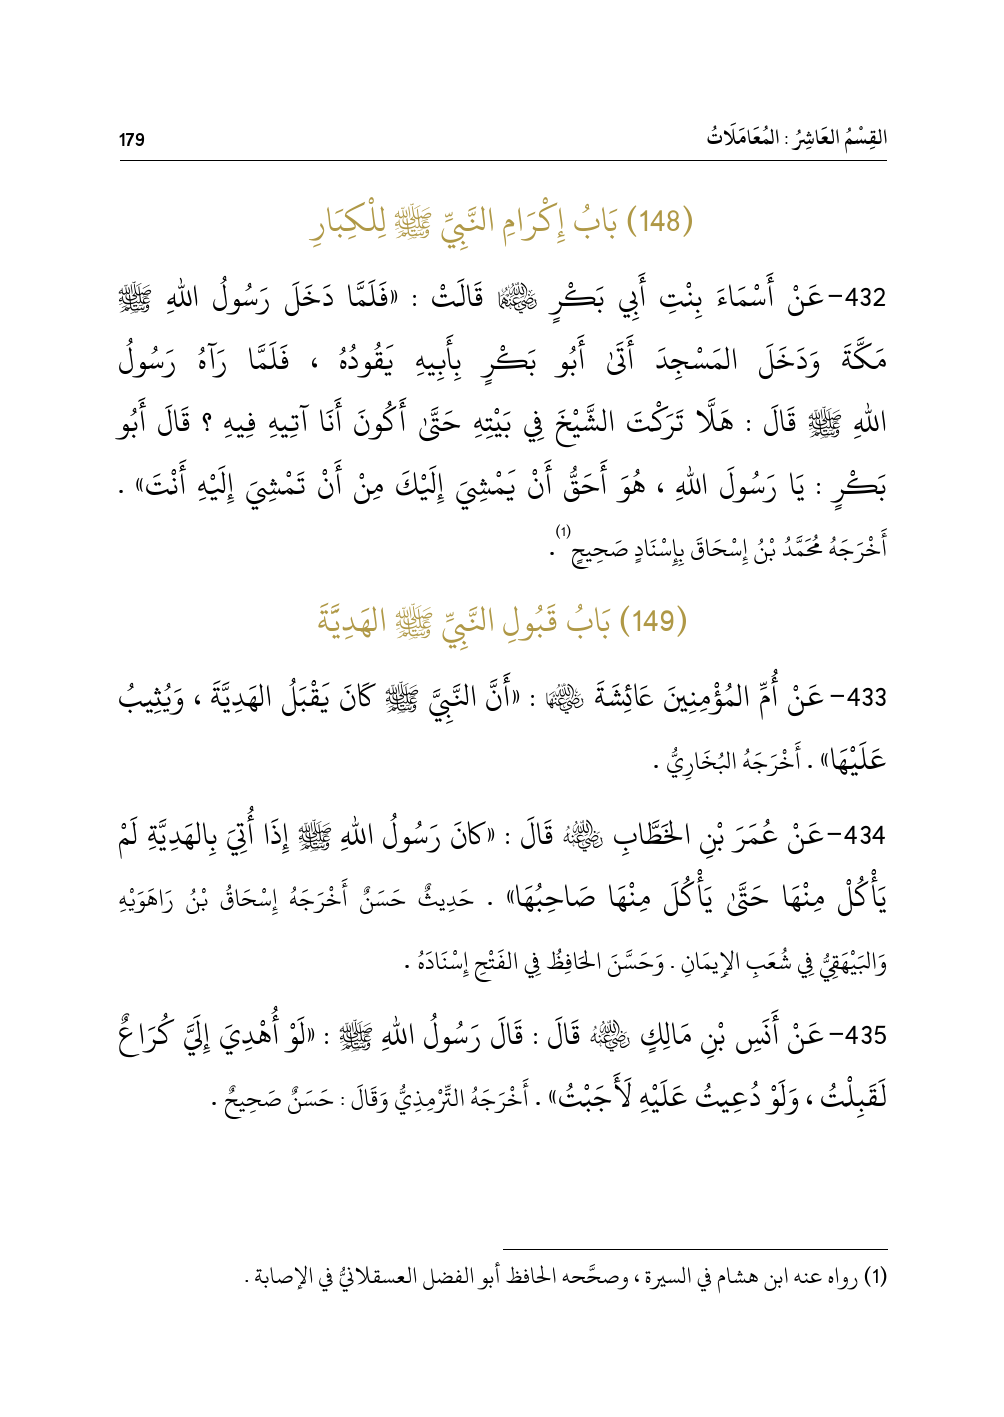 القِسْمُ العَاشِرُ : المُعَامَلَاتُ 179
(148) بَابُ إِكْرَامِ النَّبِيِّ ﷺ لِلْكِبَارِ
432- عَنْ أَسْمَاءَ بِنْتِ أَبِي بَكْرٍ رَضِيَ اللهُ عَنْهُمَا قَالَتْ : «فَلَمَّا دَخَلَ رَسُولُ اللهِ ﷺ
مَكَّةَ وَدَخَلَ المَسْجِدَ أَتَى أَبُو بَكْرٍ بِأَبِيهِ يَقُودُهُ ، فَلَمَّا رَآهُ رَسُولُ
اللهِ ﷺ قَالَ : هَلَّا تَرَكْتَ الشَّيْخَ فِي بَيْتِهِ حَتَّى أَكُونَ أَنَا آتِيهِ فِيهِ ؟ قَالَ أَبُو
بَكْرٍ : يَا رَسُولَ اللهِ ، هُوَ أَحَقُّ أَنْ يَمْشِيَ إِلَيْكَ مِنْ أَنْ تَمْشِيَ إِلَيْهِ أَنْتَ» .
أَخْرَجَهُ مُحَمَّدُ بْنُ إِسْحَاقَ بِإِسْنَادٍ صَحِيحٍ(1) .
(149) بَابُ قَبُولِ النَّبِيِّ ﷺ الهَدِيَّةَ
433- عَنْ أُمِّ المُؤْمِنِينَ عَائِشَةَ رَضِيَ اللهُ عَنْهَا : «أَنَّ النَّبِيَّ ﷺ كَانَ يَقْبَلُ الهَدِيَّةَ ، وَيُثِيبُ
عَلَيْهَا» . أَخْرَجَهُ البُخَارِيُّ .
434- عَنْ عُمَرَ بْنِ الخَطَّابِ رَضِيَ اللهُ عَنْهُ قَالَ : «كَانَ رَسُولُ اللهِ ﷺ إِذَا أُتِيَ بِالهَدِيَّةِ لَمْ
يَأْكُلْ مِنْهَا حَتَّى يَأْكُلَ مِنْهَا صَاحِبُهَا» . حَدِيثٌ حَسَنٌ أَخْرَجَهُ إِسْحَاقُ بْنُ رَاهَوَيْهِ
وَالبَيْهَقِيُّ فِي شُعَبِ الإِيمَانِ . وَحَسَّنَ الحَافِظُ فِي الفَتْحِ إِسْنَادَهُ .
435- عَنْ أَنَسِ بْنِ مَالِكٍ رَضِيَ اللهُ عَنْهُ قَالَ : قَالَ رَسُولُ اللهِ ﷺ : «لَوْ أُهْدِيَ إِلَيَّ كُرَاعٌ
لَقَبِلْتُ ، وَلَوْ دُعِيتُ عَلَيْهِ لَأَجَبْتُ» . أَخْرَجَهُ التِّرْمِذِيُّ وَقَالَ : حَسَنٌ صَحِيحٌ .
(1) رواه عنه ابن هشام في السيرة ، وصحَّحه الحافظ أبو الفضل العسقلانيُّ في الإصابة .